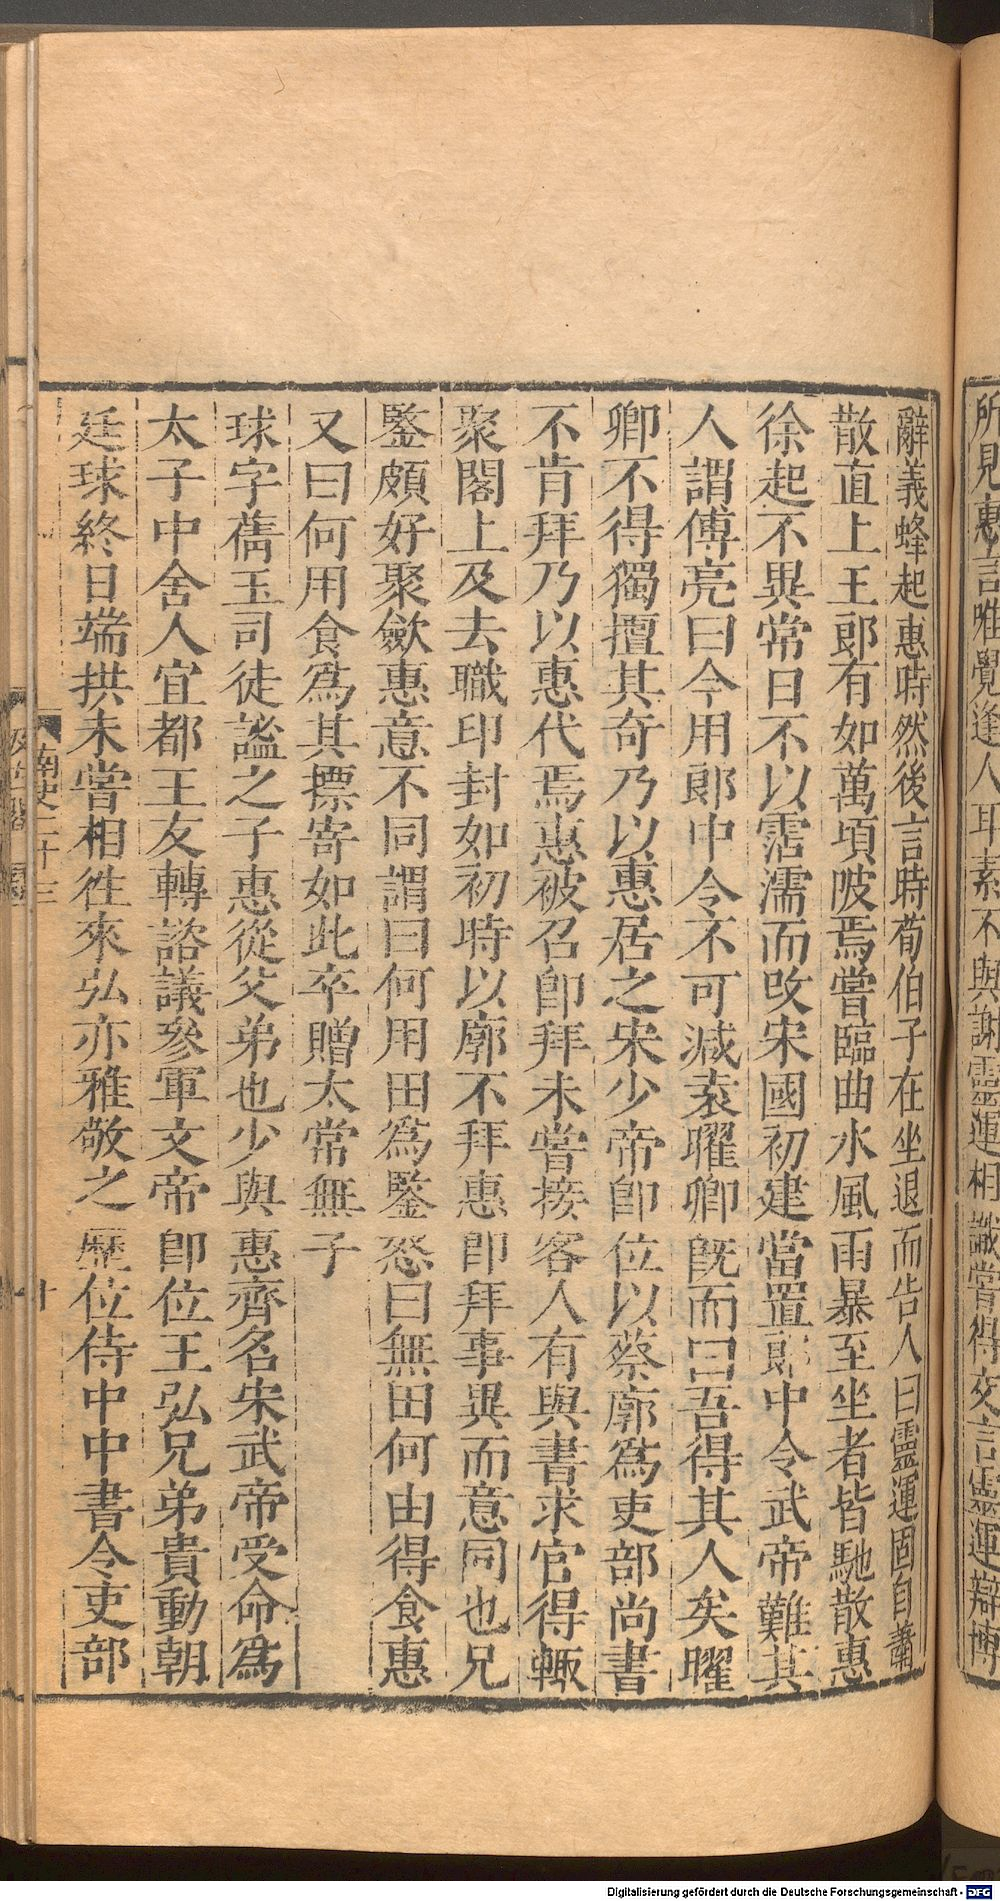 所見惠言唯覺逢人耳素不與謝靈運相識嘗得交言靈運辯博
辭義蜂起惠時然後言時荀伯子在坐退而告人曰靈運固自蕭
散直上王郎有如萬頃陂焉嘗臨曲水風雨暴至坐者皆馳散惠
徐起不異常日不以霑濡而改宋國初建當置郎中令武帝難其
人謂傅亮曰今用郎中令不可減袁曜卿既而曰吾得其人矣曜
卿不得獨擅其奇乃以惠居之宋少帝即位以蔡廓為吏部尚書
不肯拜乃以惠代焉惠被召即拜未嘗接客人有與書求官得輒
聚閣上及去職印封如初時以廓不拜惠即拜事異而意同也兄
鑒頗好聚斂惠意不同謂曰何用田為鑒怒曰無田何由得食惠
又曰何用食為其摽寄如此卒贈太常無子
球字蒨玉司徒謐之子惠從父弟也少與惠齊名宋武帝受命為
太子中舍人宜都王友轉諮議參軍文帝即位王弘兄弟貴動朝
廷球終日端拱未嘗相徃來弘亦雅敬之歷位侍中中書令吏部
南史二十三
十
Digitalisierung gefördert durch die Deutsche Forschungsgemeinschaft - DFG